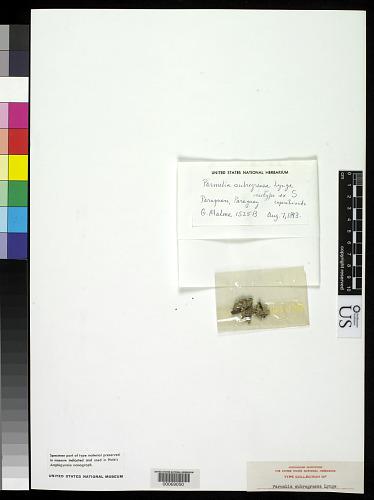 UNITED STATES NATIONAL HERBARIUM
Parmelia subregressa Lynge
isotype ex S
Paraguari, Paraguay
G. Malme 1525B Aug. 7, 1893.
copyright reserved
cm
US
Specimen part of type material preserved
in museum indicated and used in Hale's
Amphigymnia monograph.
UNITED STATES NATIONAL MUSEUM
00069050
THE UNITED STATES NATIONAL HERBARIUM
TYPE COLLECTION OF
Parmelia subregressa Lynge